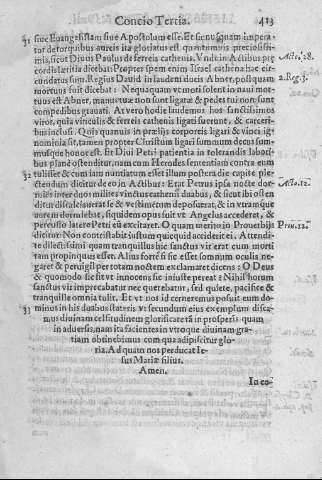 Concio Tertia. 413
31 siue Euangelistam siue Apostolum esse. Et sic nusquam impera-
tor de torquibus aureis ita gloriatus est quantumuis preciosissi-
mis, sicut Diuus Paulus de ferreis cathenis. Vnde in Actibus præ Acto. 28.
cordis lætitia dicebat: Propter spem enim Israel cathena hac cir-
cundatus sum. Regius Dauid in laudem ducis Abner, postquam 2. Reg. 3.
mortuus fuit dicebat: Nequaquam vt mori solent ignaui mor-
tuus est Abner, manus tuæ non sunt ligatæ & pedes tui non sunt
compedibus grauati. At vero hodie laudemus hos sanctissimos
viros, quia vinculis & ferreis cathenis ligati fuerunt, & carceri-
bus inclusi. Quis quamuis in prælijs corporeis ligari & vinci ig-
nominia sit, tamen propter Christum ligari summum decus sum-
musque honos est. Et Diui Petri patientia in tolerandis labori-
bus plane ostenditur, nam cum Herodes sententiam contra eum
32 tulisset & cum iam nuntiatum esset illum postera die capite ple-
ctendum dicitur de eo in Actibus: Erat Petrus ipsa nocte dor- Acto. 12.
miens inter duos milites vinctus cathenis duabus, & sicut ibi osten
ditur discalceauerat se & vestimentum deposuerat, & in vtramque
aurem dormiebat, siquidem opus fuit vt Angelus accederet, &
percusso latere Petri eū excitaret. O quam merito in Prouerbijs Prou. 12.
dicitur: Non contristabit iustum quicquid acciderit ei. Attendi-
te dilectissimi quam tranquillus hic sanctus vir erat cum morti
tam propinquus esset. Alius forte si sic esset somnum oculis ne-
garet & peruigil per totam noctem exclamaret dicens: O Deus
& quomodo fieri vt innocens sic iniuste peream? Nihil horum
sanctus vir imprecabatur nec querebatur, sed quiete, pacifice &
tranquille omnia tulit. Et vt nos id cerneremus posuit eum do-
33 minus in his duabus stateris vt secundum eius exemplum disca-
mus diuinam celsitudinem glorificare tā in prosperis quam
in aduersis, nam ita facientes in vtroque diuinam gra-
tiam obtinebimus cum qua adipiscitur glo-
ria. Ad quam nos perducat Ie-
sus Mariæ filius.
Amen.
In eo-